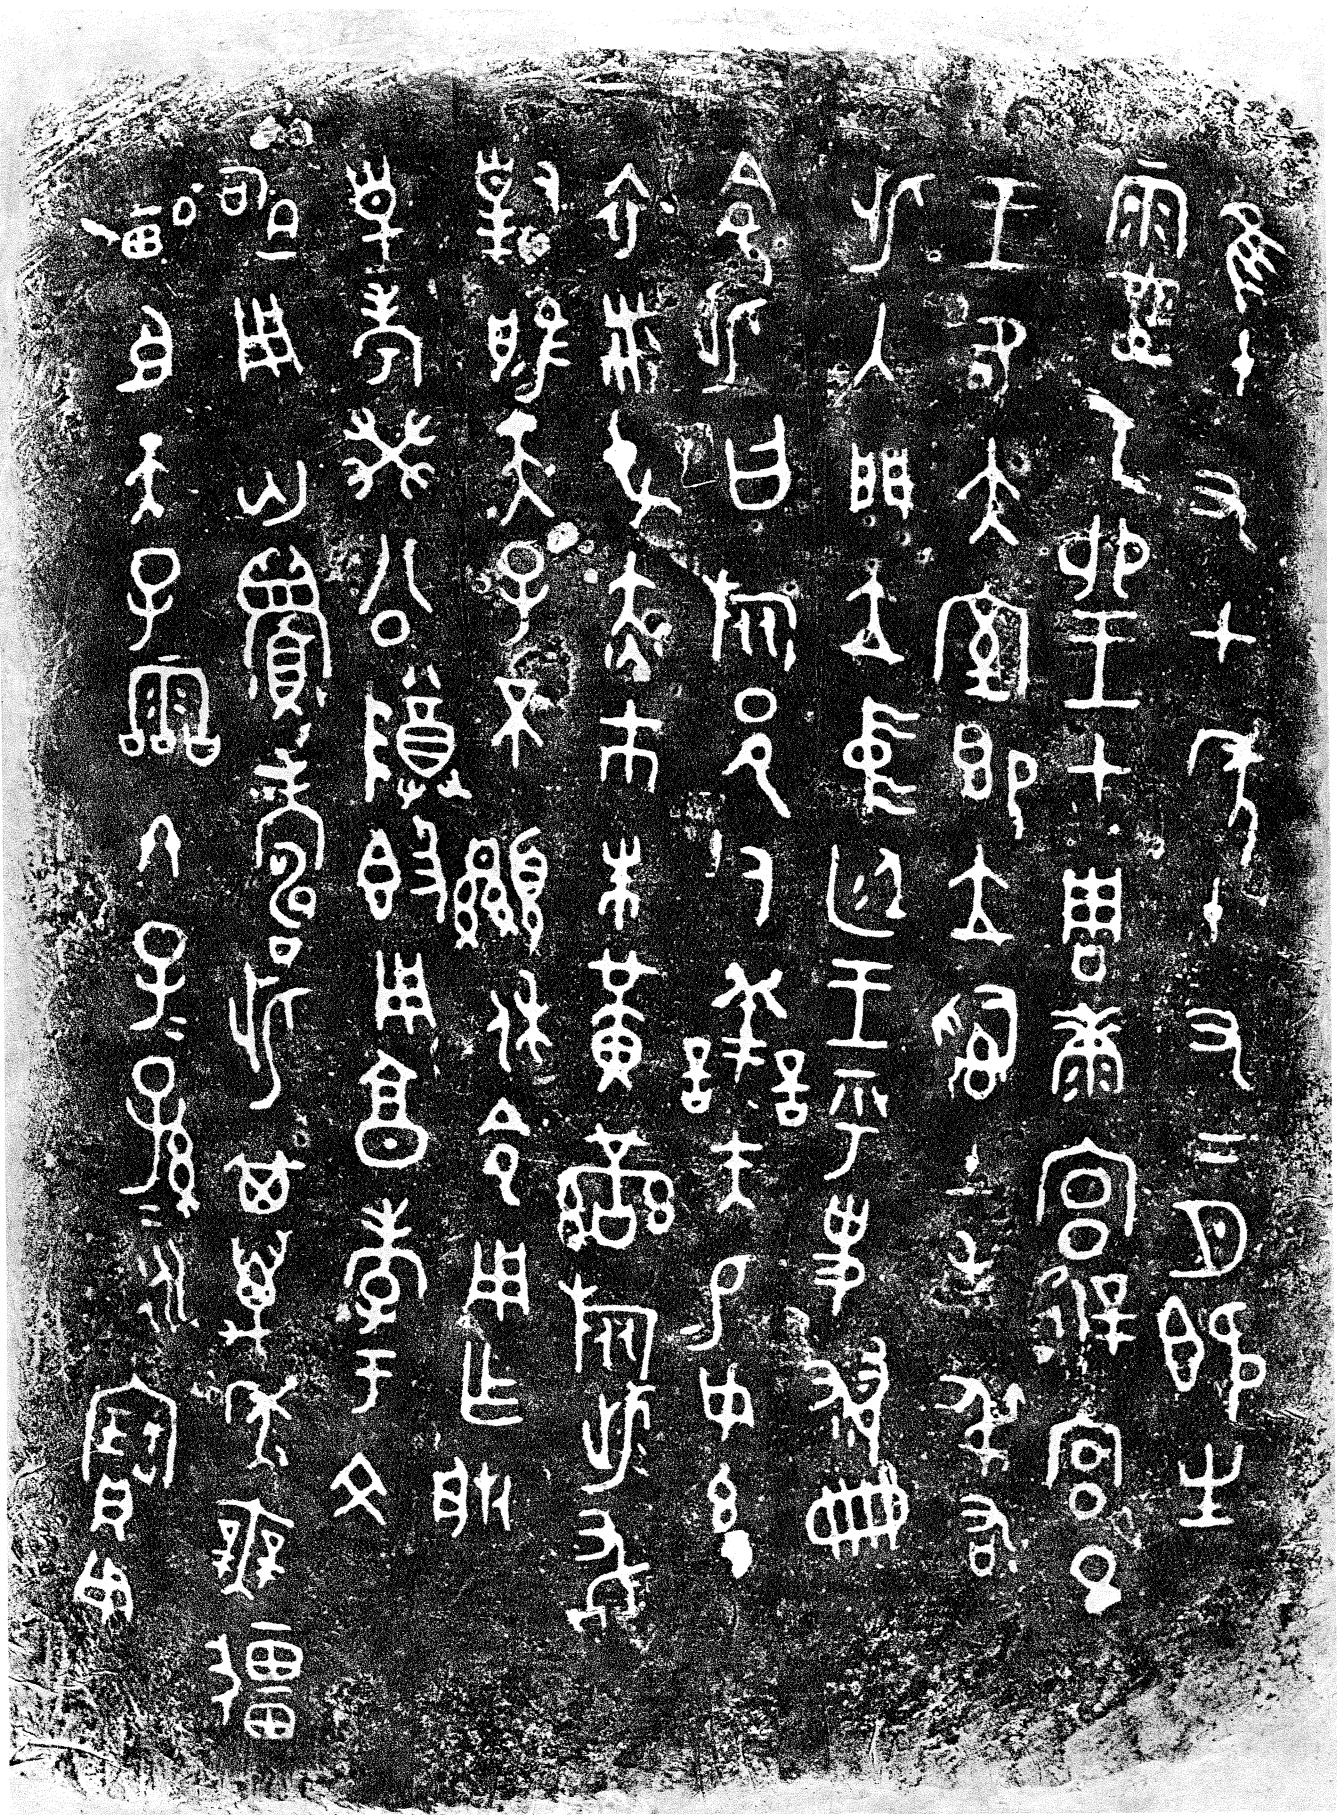 隹十又七年十又二月既生
霸乙卯王才周康宮𢓊宮旦
王各大室即立𤔲土毛弔右
此入門立中廷王乎史翏冊
令此曰旅邑人善夫易女玄
衣黹屯赤巿朱黃䜌旂此敢
對揚天子不顯休令用乍朕
皇考癸公𬯚𣪘用享孝于文
申用匄眉壽此其萬年無疆
畯臣天子霝冬子=孫=永寶用